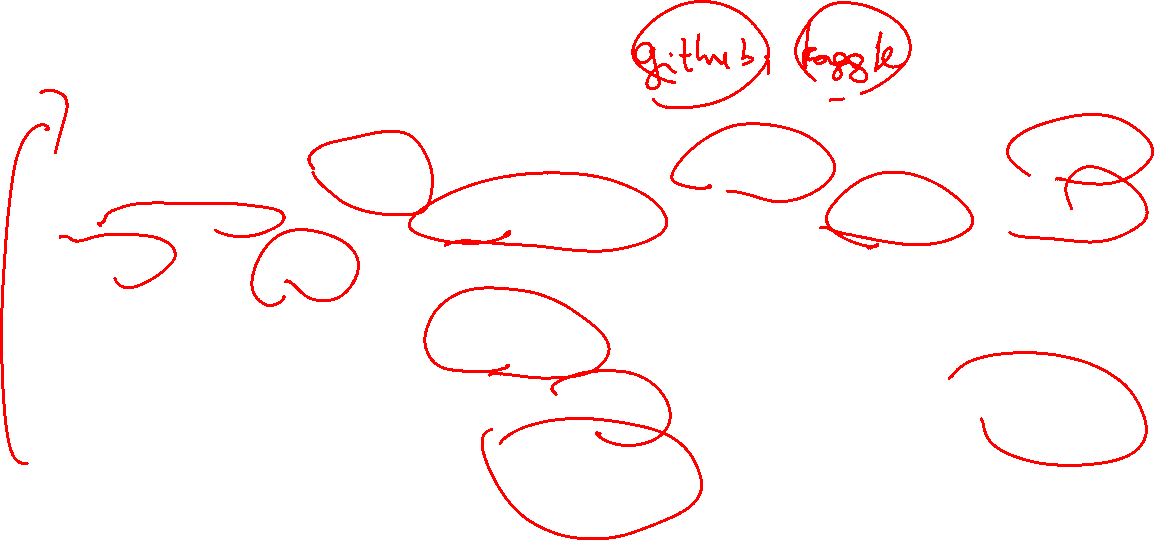 github kaggle